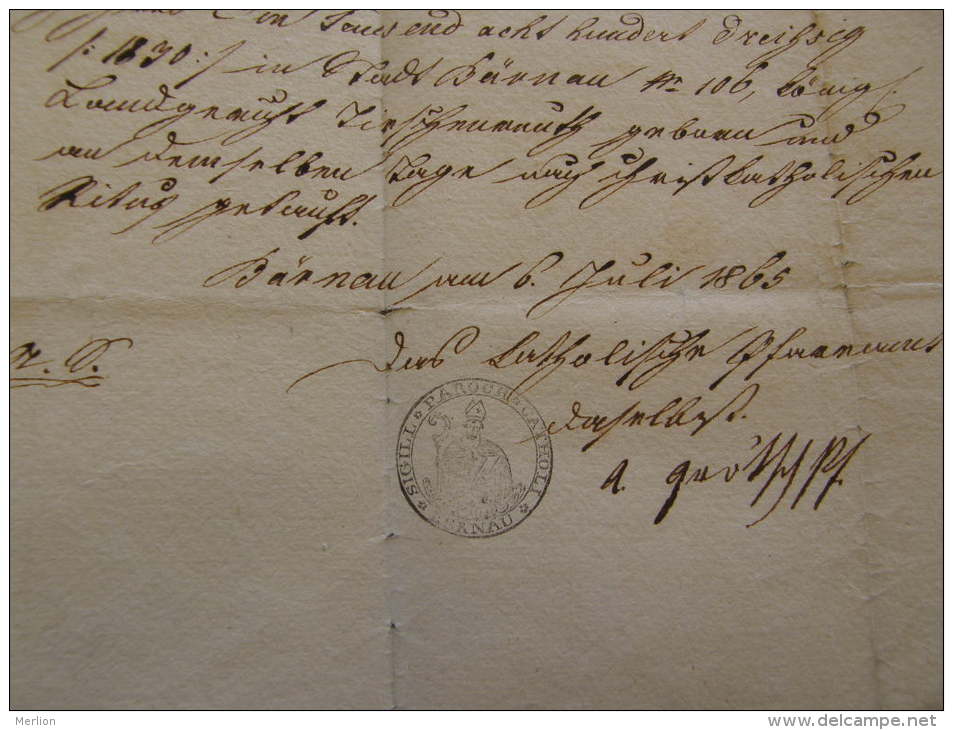 Ein Tausend acht hundert dreißig
/: 1830 :/ in Stadt Bärnau Nr 106, königl.
Landgericht Tirschenreuth geboren und
an demselben Tage nach christkatholischen
Ritus getauft.
Bärnau am 6. Juli 1865
Das katholische Pfarramt
daselbst.
L. S.
SIGILL * PAROCH * CATHOLI * BERNAU *
Merlion
www.delcampe.net